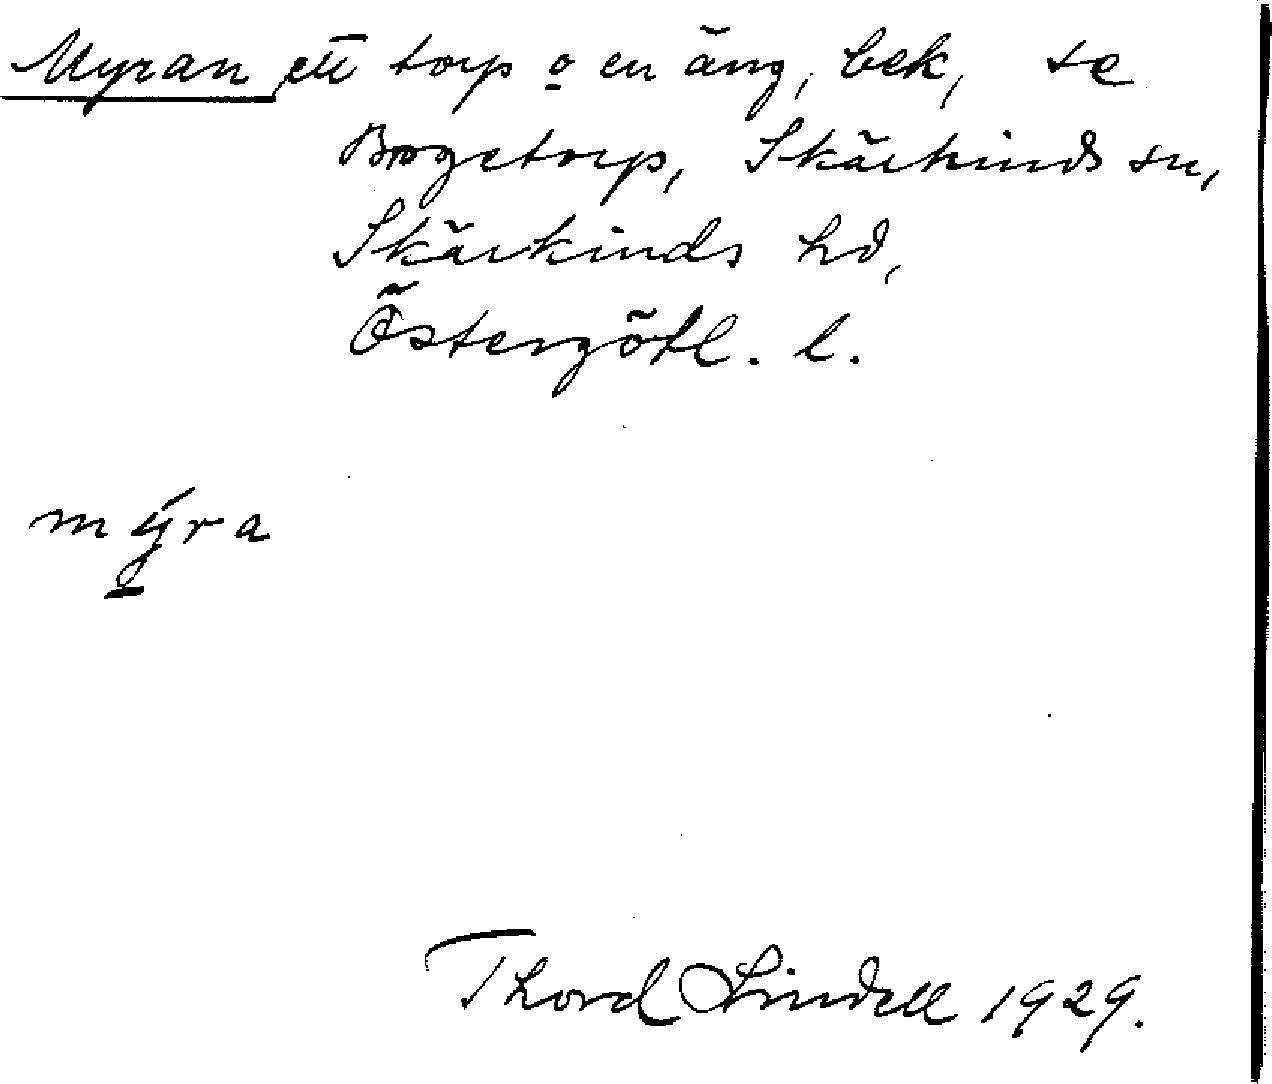 Myran ett torp o en äng, bek, se
Brogetorp, Skärkinds sn,
Skärkinds hd,
Östergötl. l.
mýra
Thord Lindell 1929.